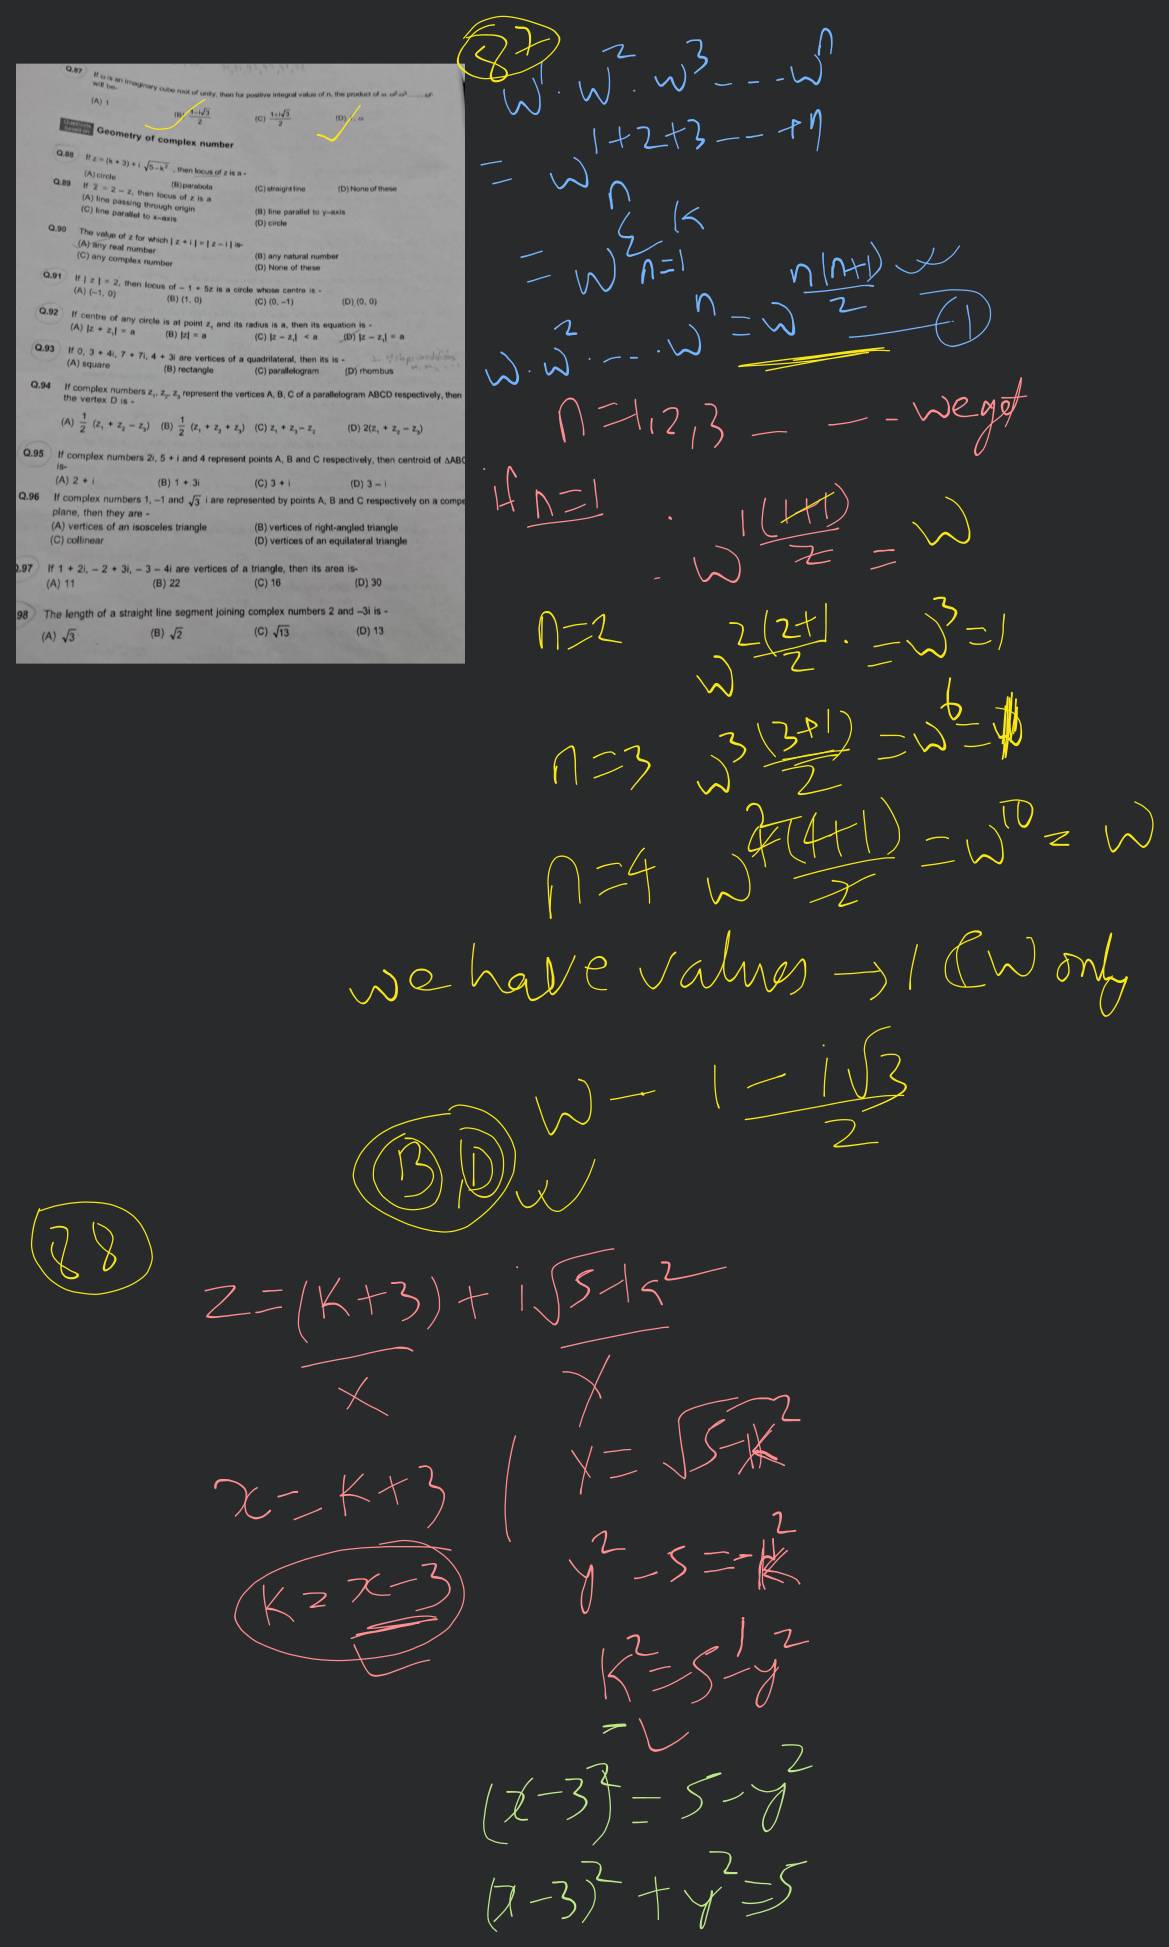 Q.87 If ω is an imaginary cube root of unity, then for positive integral value of n, the product of ω. ω².ω³.........ωⁿ
will be-
(A) 1 (B) 1−i√3/2 (C) 1+i√3/2 (D) ω
Geometry of complex number
Q.88 If z = (k + 3) + i √5−k² , then locus of z is a -
(A) circle (B) parabola (C) straight line (D) None of these
Q.89 If z̄ = 2 − z, then locus of z is a
(A) line passing through origin (B) line parallel to y-axis
(C) line parallel to x-axis (D) circle
Q.90 The value of z for which | z + i | = | z − i | is-
(A) any real number (B) any natural number
(C) any complex number (D) None of these
Q.91 If | z | = 2, then locus of − 1 + 5z is a circle whose centre is -
(A) (−1, 0) (B) (1, 0) (C) (0, −1) (D) (0, 0)
Q.92 If centre of any circle is at point z₁ and its radius is a, then its equation is -
(A) |z + z₁| = a (B) |z| = a (C) |z − z₁| < a (D) |z − z₁| = a
Q.93 If 0, 3 + 4i, 7 + 7i, 4 + 3i are vertices of a quadrilateral, then its is -
(A) square (B) rectangle (C) parallelogram (D) rhombus
Q.94 If complex numbers z₁, z₂, z₃ represent the vertices A, B, C of a parallelogram ABCD respectively, then
the vertex D is -
(A) 1/2 (z₁ + z₂ − z₃) (B) 1/2 (z₁ + z₂ + z₃) (C) z₁ + z₃ − z₂ (D) 2(z₁ + z₂ − z₃)
Q.95 If complex numbers 2i, 5 + i and 4 represent points A, B and C respectively, then centroid of ΔABC
is-
(A) 2 + i (B) 1 + 3i (C) 3 + i (D) 3 − i
Q.96 If complex numbers 1, −1 and √3 i are represented by points A, B and C respectively on a compe
plane, then they are -
(A) vertices of an isosceles triangle (B) vertices of right-angled triangle
(C) collinear (D) vertices of an equilateral triangle
.97 If 1 + 2i, − 2 + 3i, − 3 − 4i are vertices of a triangle, then its area is-
(A) 11 (B) 22 (C) 16 (D) 30
98 The length of a straight line segment joining complex numbers 2 and −3i is -
(A) √3 (B) √2 (C) √13 (D) 13
87
w¹ . w² . w³ ---- wⁿ
= w^(1+2+3---+n)
= w^(n Σ n=1 K)
w.w². --- . wⁿ = w^(n(n+1)/2) —— ①
n=1,2,3 — — - we get
if n=1
: w^(1(1+1)/2) = w
n=2 w^(2(2+1/2) . = w³ = 1
n=3 w^(3(3+1)/2) = w⁶ = 1
n=4 w^(4(4+1)/2) = w¹⁰ = w
we have values → 1 & w only
w – 1 – i√3/2
B D
88
z = (K+3) + i√5-k²
x y
x = K+3 | y = √5-K²
K = x-3 y² - 5 = -K²
K² = 5 - y²
(x-3)² = 5 - y²
(x-3)² + y² = 5